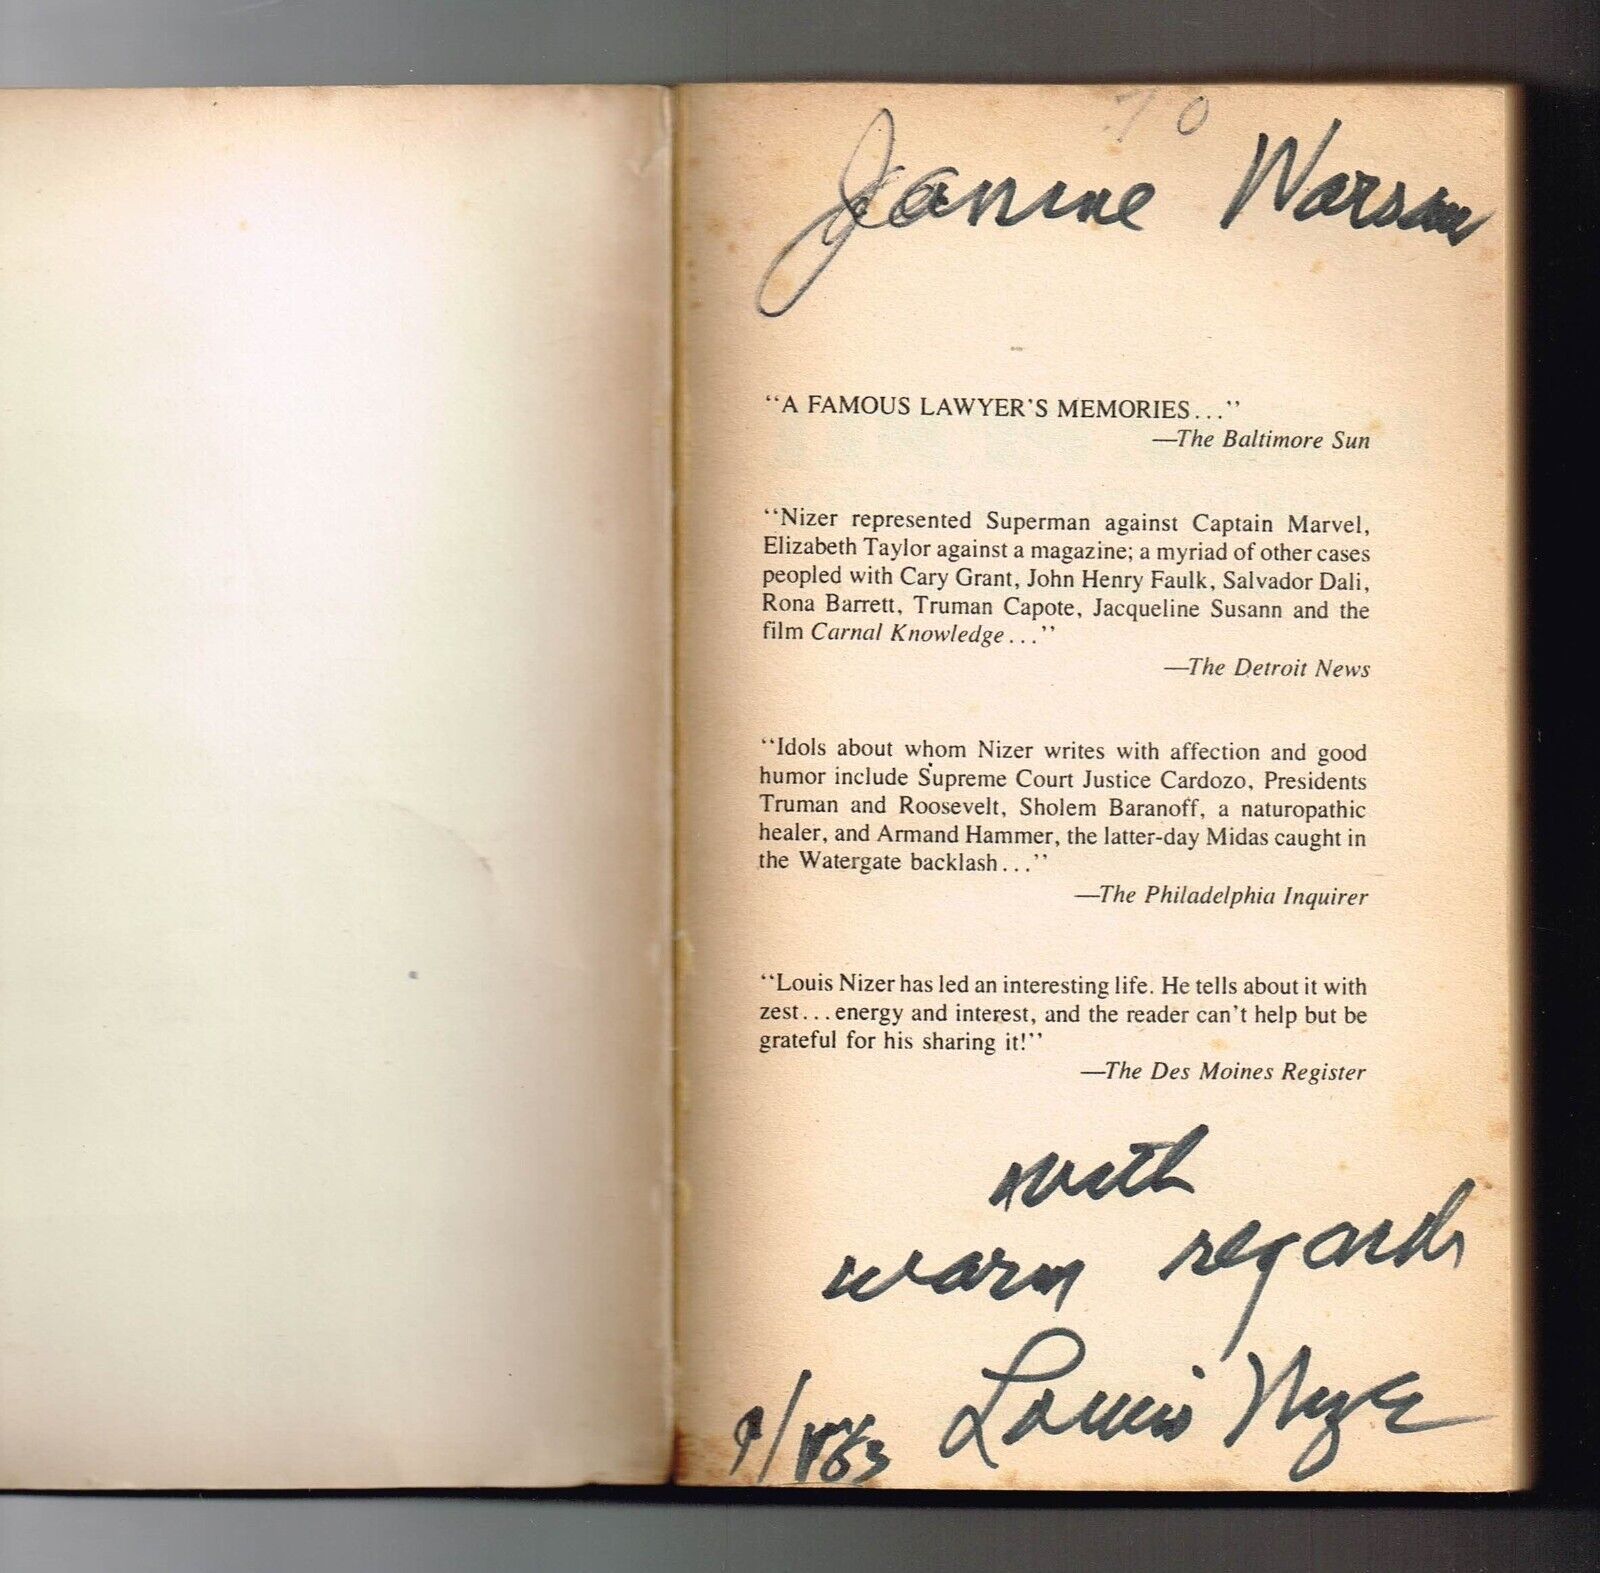 To
Janine Warsaw
"A FAMOUS LAWYER'S MEMORIES..."
—The Baltimore Sun
"Nizer represented Superman against Captain Marvel,
Elizabeth Taylor against a magazine; a myriad of other cases
peopled with Cary Grant, John Henry Faulk, Salvador Dali,
Rona Barrett, Truman Capote, Jacqueline Susann and the
film Carnal Knowledge..."
—The Detroit News
"Idols about whom Nizer writes with affection and good
humor include Supreme Court Justice Cardozo, Presidents
Truman and Roosevelt, Sholem Baranoff, a naturopathic
healer, and Armand Hammer, the latter-day Midas caught in
the Watergate backlash..."
—The Philadelphia Inquirer
"Louis Nizer has led an interesting life. He tells about it with
zest...energy and interest, and the reader can't help but be
grateful for his sharing it!"
—The Des Moines Register
with
warm regards
Louis Nizer